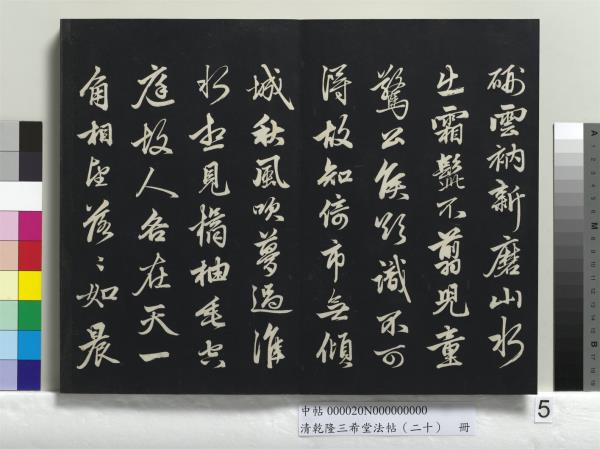 硎雲衲新磨山水
出霜髭不翦兒童
驚公侯欲識不可
得故知倚市無傾
城秋風吹夢過淮
水想見橘柚垂空
庭故人各在天一
角相望落〻如晨
中帖 000020N000000000
清乾隆三希堂法帖(二十) 冊
5